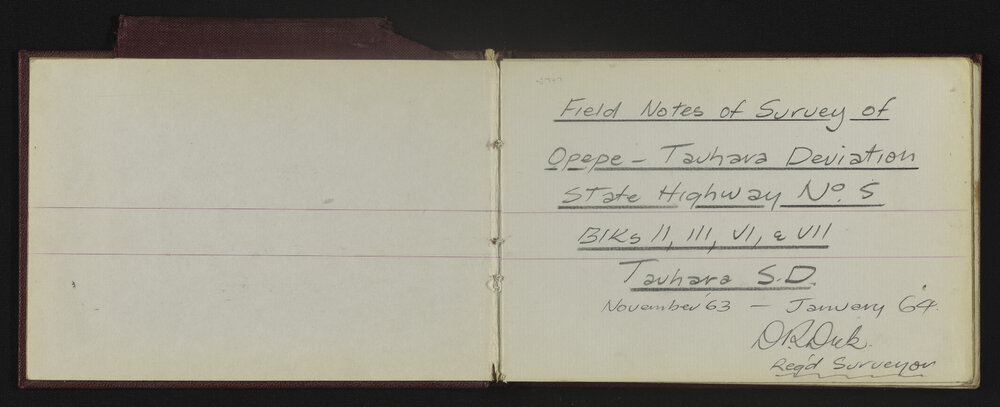 Field Notes of Survey of
Opepe - Tauhara Deviation
State Highway No. 5
Blks II, III, VI, & VII
Tauhara S.D.
November '63 — January 64.
Reg'd Surveyor